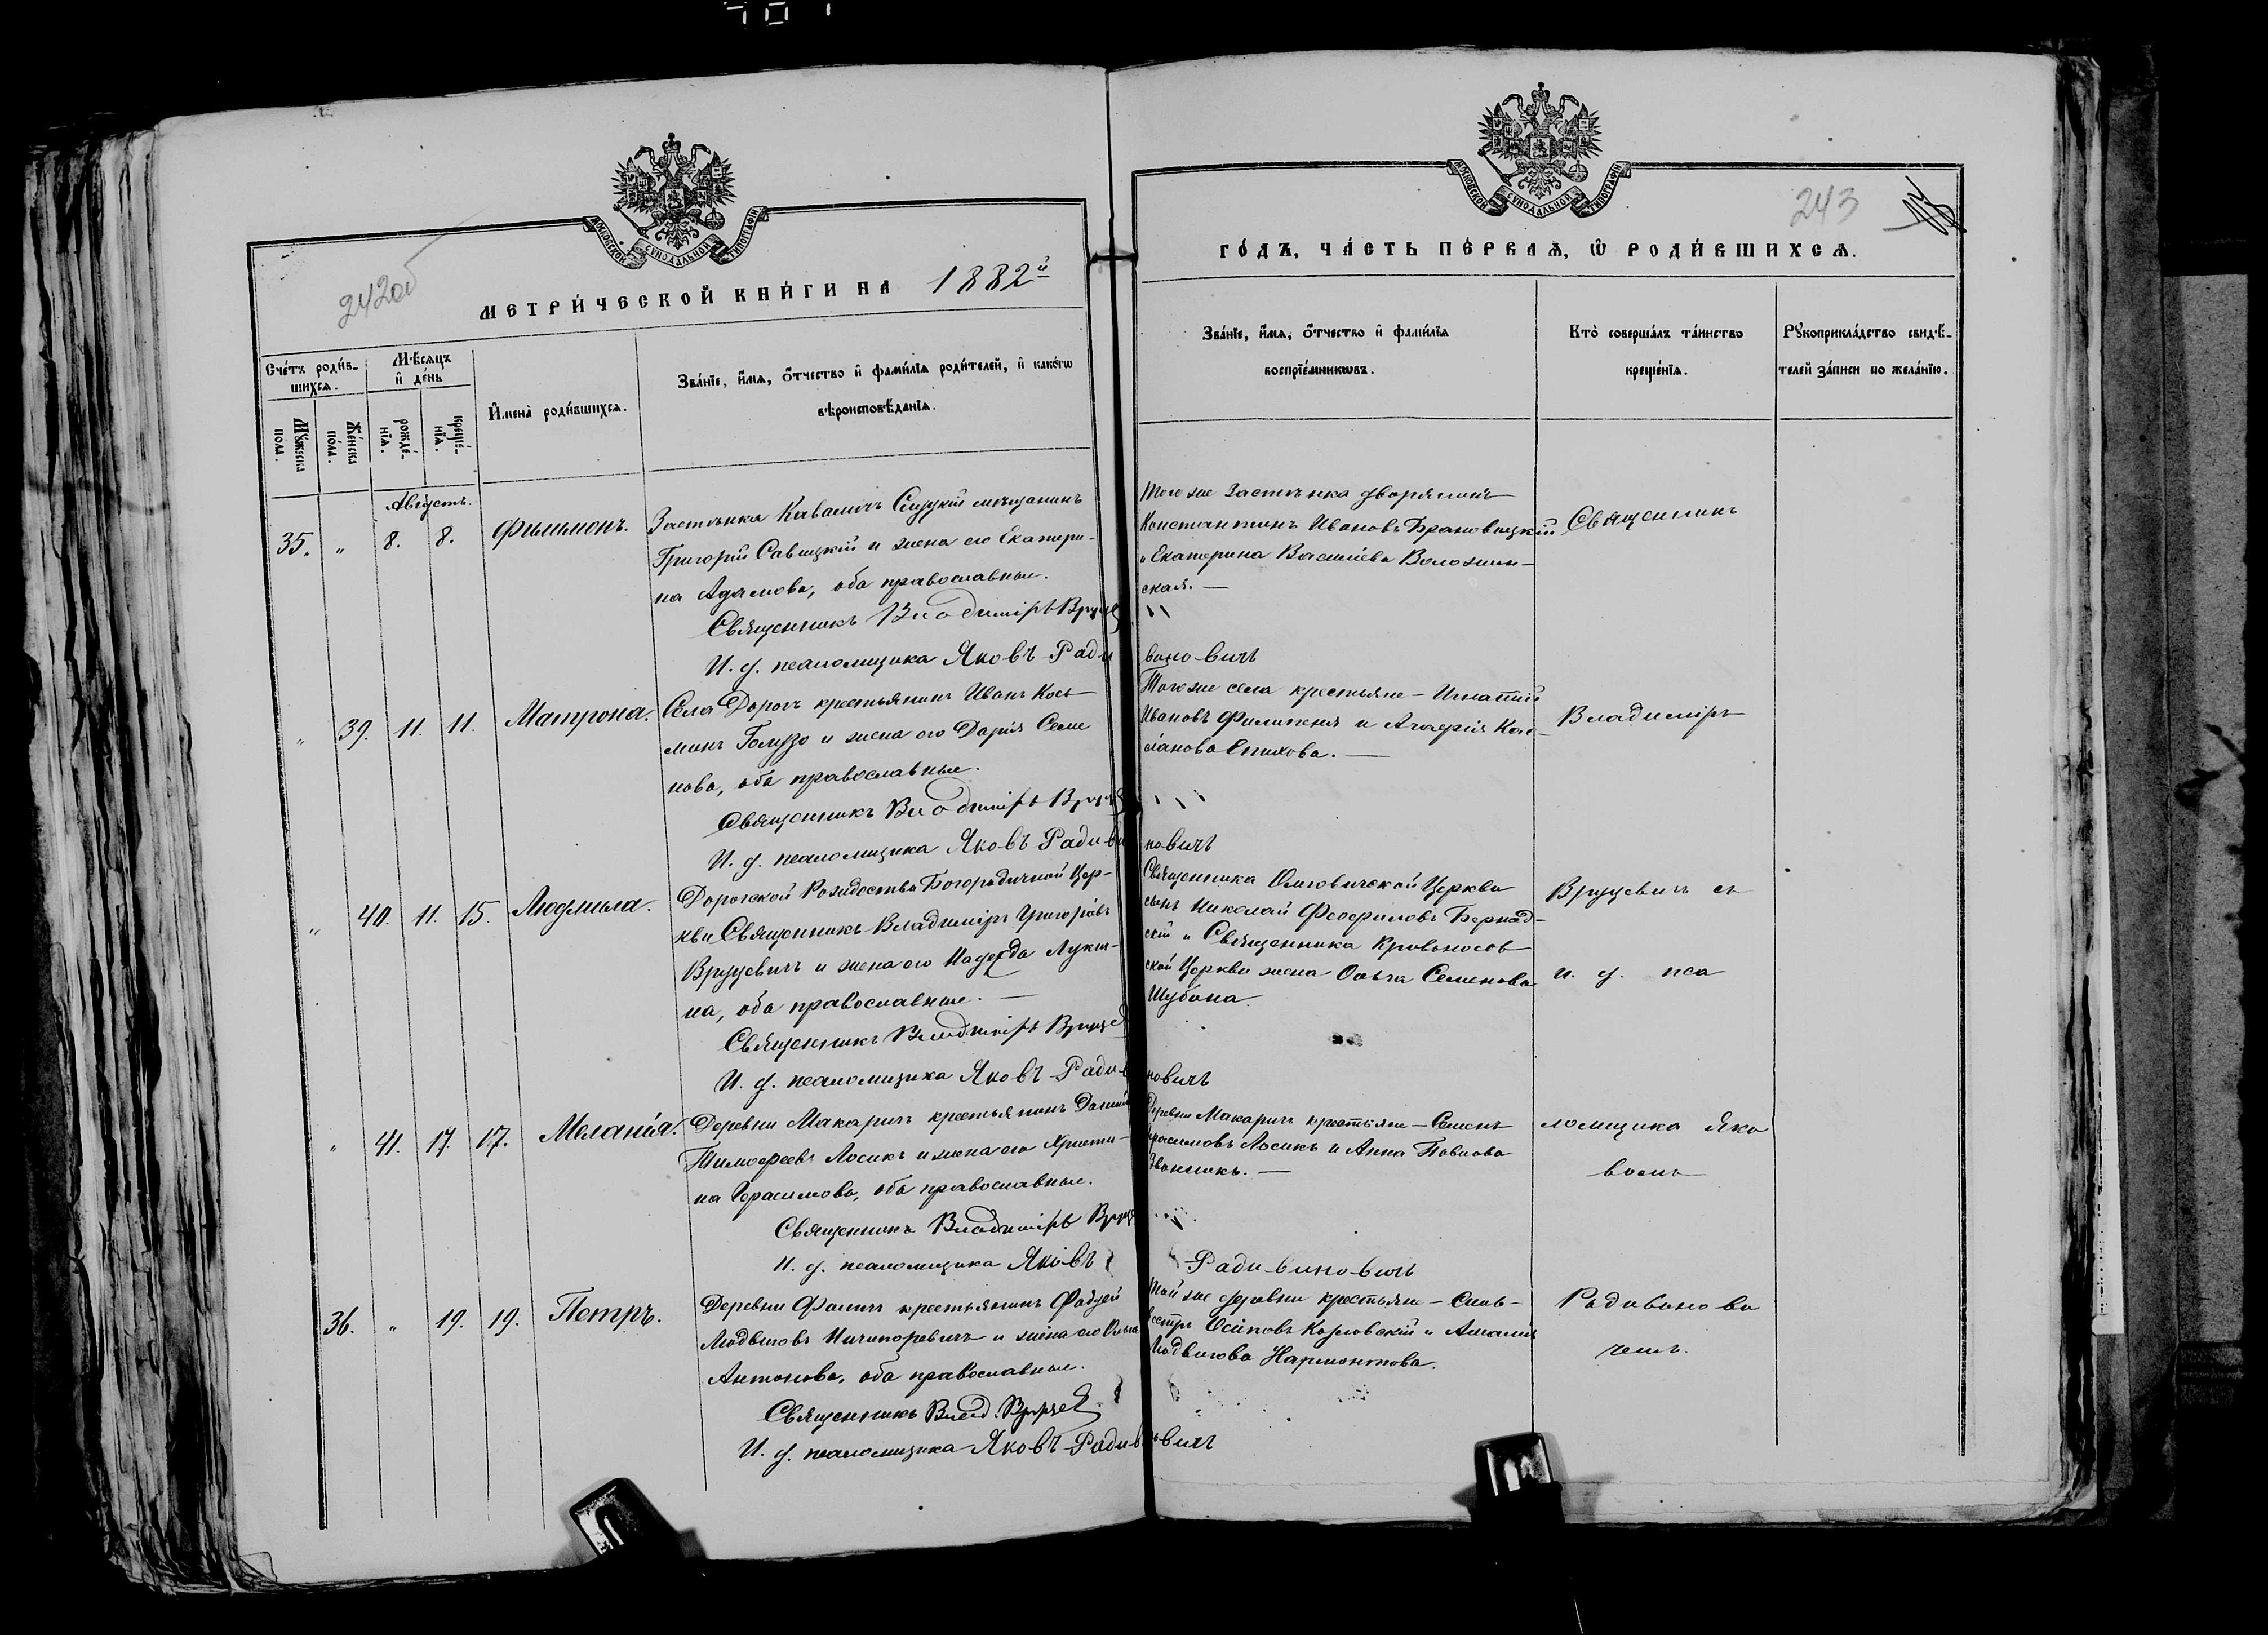 МОСКОВСКОЙ СѴНОДАЛЬНОЙ ТИПОГРАФІИ
242об
МЕТРИ́ЧЕСКОЙ КНИ́ГИ НА 1882й
Сче́тъ роди́в-
шихсѧ.
Мѣ́сѧцъ
и҆ де́нь
Мꙋ́жеска
по́ла.
Же́нска
по́ла.
рожде́-
нїѧ.
креще́-
нїѧ.
И҆мена̀ роди́вшихсѧ.
Зва́нїе, и҆́мѧ, ѻ҆́тчество и҆ фами́лїѧ роди́телей, и҆ како́гѡ
вѣроисповѣ́данїѧ.
Августъ.
35. " 8. 8. Филимонъ.
Застѣнка Каваличъ Слуцкій мѣщанинъ
Григорій Савицкій и жена его Екатери-
на Адамова, оба православные.
Священникъ Владиміръ Вруце
И. д. псаломщика Яковъ Ради
" 39. 11. 11. Матрона.
Села Дорогъ крестьянинъ Иванъ Кось-
минъ Голузо и жена его Дарія Семе
нова, оба православные.
Священникъ Владиміръ Вруце
И. д. псаломщика Яковъ Радиви
" 40. 11. 15. Людмила.
Дорогской Рождество Богородичной Цер-
кви Священникъ Владиміръ Григоріевъ
Вруцевичъ и жена его Надежда Луки-
на, оба православные. —
Священникъ Владиміръ Вруце
И. д. псаломщика Яковъ Радив
" 41. 17. 17. Меланія.
Деревни Макаричъ крестьянинъ Даніилъ
Тимофеевъ Лосикъ и жена его Христи-
на Герасимова, оба православные.
Священникъ Владиміръ Вруце
И. д. псаломщика Яковъ
36. " 19. 19. Петръ.
Деревни Фаличъ крестьянинъ Фадей
Людвиковъ Ничипоровичъ и жена его Ольга
Антонова, оба православные.
Священникъ Влад. Вруце
И. д. псаломщика Яковъ Радив
МОСКОВСКОЙ СѴНОДАЛЬНОЙ ТИПОГРАФІИ
243
ГО́ДЪ, ЧА́СТЬ ПЕ́РВАѦ, Ѡ҆ РОДИ́ВШИХСѦ.
Зва́нїе, и҆́мѧ, ѻ҆́тчество и҆ фами́лїѧ
воспрїе́мникѡвъ.
Кто̀ соверша́лъ та́инство
креще́нїѧ.
Рꙋкоприкла́дство свидѣ́-
телей за́писи по жела́нїю.
Того же Застѣнка дворянинъ
Константинъ Ивановъ Брановицкій
и Екатерина Васильева Воложин-
ская. —
виновичъ
Того же села крестьяне — Игнатій
Ивановъ Филипеня и Агафія Кас-
сіанова Епихова. —
новичъ
Священника Омговичской Церкви
сынъ Николай Феофиловъ Бернад-
скій и Священника Кривоносов
ской Церкви жена Ольга Семенова
Шубина.
новичъ
Деревни Макаричъ крестьяне — Семенъ
Герасимовъ Лосикъ и Анна Павлова
Звонникъ. —
Радивиновичъ
Той же деревни крестьяне — Силь-
вестръ Осиповъ Козловскій и Амалія
Людвигова Нармонтова.
овичъ
Священникъ
Владиміръ
Вруцевичъ съ
и. д. пса
ломщика Яко
вомъ
Радивинови
чемъ.